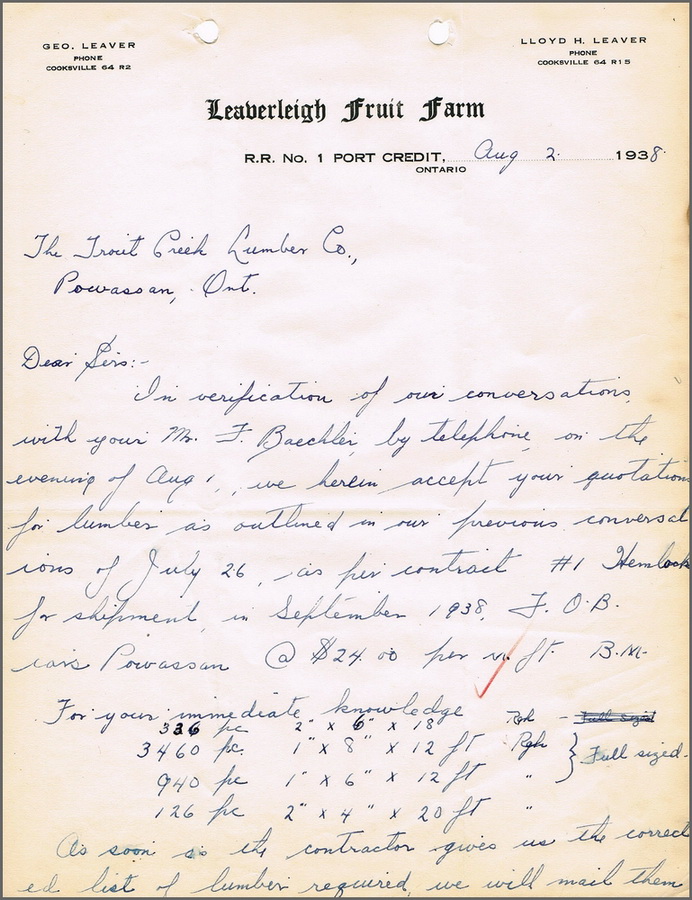 GEO. LEAVER
PHONE
COOKSVILLE 64 R2
LLOYD H. LEAVER
PHONE
COOKSVILLE 64 R15
Leaverleigh Fruit Farm
R.R. No. 1 PORT CREDIT, Aug 2. 1938.
ONTARIO
The Trout Creek Lumber Co.,
Powassan, Ont.
Dear Sirs:-
In verification of our conversations
with your Mr. F. Baechler, by telephone, on the
evening of Aug 1, we herein accept your quotations
for lumber as outlined in our previous conversat
ions of July 26, as per contract #1 Hemlock
for shipment, in September 1938, F.O.B.
cars Powassan @ $24.00 per m ft. B.M.
For your immediate knowledge
336 pc 2" x 6" x 18' Rgh - Full sized
3460 pc. 1" x 8" x 12 ft Rgh } Full sized.
940 pc 1" x 6" x 12 ft "
126 pc 2" x 4" x 20 ft "
As soon as the contractor gives us the correct
ed list of lumber required, we will mail them